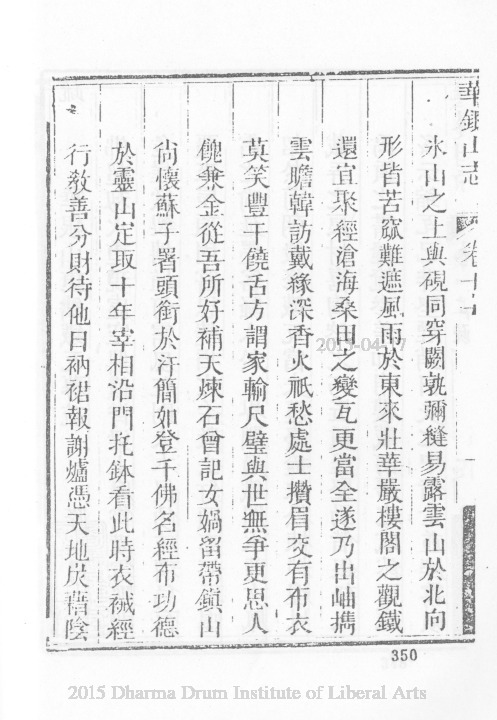 華銀山志 卷十
氷山之上與硯同穿闕孰彌縫易露雲山於北向
形皆苦窳難遮風雨於東來壯華嚴樓閣之觀鐵
還宜聚經滄海桑田之變瓦更當全遂乃出岫攜
雲瞻韓訪戴緣深香火祇愁處士攢眉交有布衣
莫笑豐干饒舌方謂家輸尺璧與世無爭更思人
餽兼金從吾所好補天煉石曾記女媧留帶鎭山
尙懷蘇子署頭銜於汗簡如登千佛名經布功德
於靈山定取十年宰相沿門托鉢看此時衣祴經
行敎善分財待他日衲裙報謝爐憑天地炭藉陰
2015-04-17
350
2015 Dharma Drum Institute of Liberal Arts